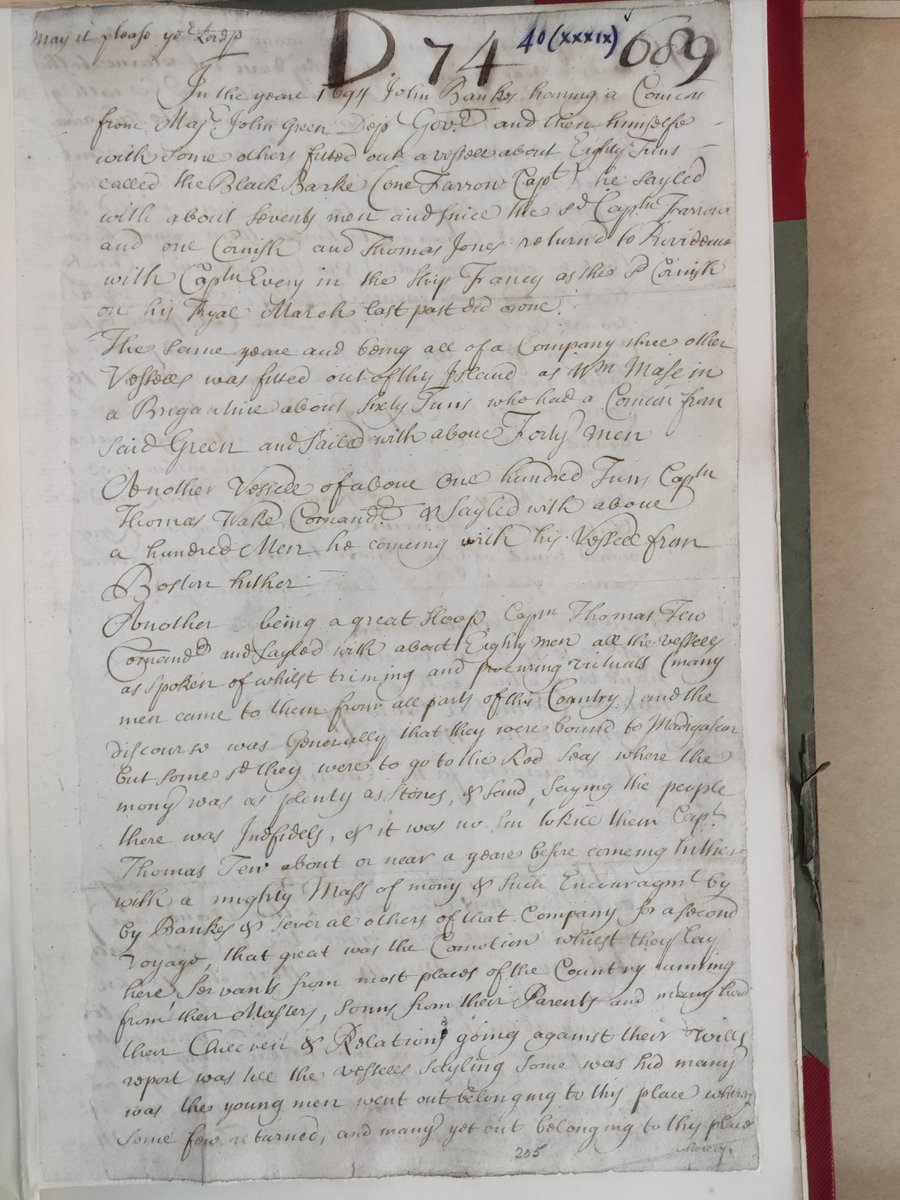 May it please yor Lordp
D 74 40 (xxxix) 689
In the yeare 1694 John Bankes haveing a Comicon
from Majr John Green Depty Govr and then himselfe
with some others fitted out a vessell about Eighty Tuns
called the Black Barke (one Farrow Capt) he sayled
with about seventy men and since the sd Captn Farrow
and one Cornish and Thomas Jones returnd to Providence
with Captn Every in the ship Fancy as the sd Cornish
on his Tryal March last past did owne.
The same yeare and being all of a Company three other
Vessells was fitted out of this Island as Wm Mase in
a Brigantine about sixty Tuns who had a Comicon from
said Green and Sailed with above Forty men
Another Vessell of above one hundred Tuns Captn
Thomas Wake Comandr & Sayled with above
a hundred Men he comeing with his Vessell from
Boston hither
Another being a great sloop Captn Thomas Tew
Comandr and Sayled with about Eighty men all the vessells
as spoken of whilst triming and procuring victuals (many
men came to them from all parts of this Country) and the
discourse was Generally that they were bound to Madigascar
but some sd they were to go to the Red Seas where the
mony was as plenty as stones, & sand, saying the people
there was Infidels, & it was no sin to kill them Capt
Thomas Tew about or near a yeare before comeing hither
with a mighty Mass of mony & such Encouragmt by
by Bankes & several others of that Company for a second
voyage, that great was the Comotion whilst they lay
here servants from most places of the Country running
from their Masters, sonns from their Parents and many had
their Children & Relations going against their wills
report was till the vessells sayling some was hid many
was the young men went out belonging to this place whereof
some few returned, and many yet out belonging to this place
205